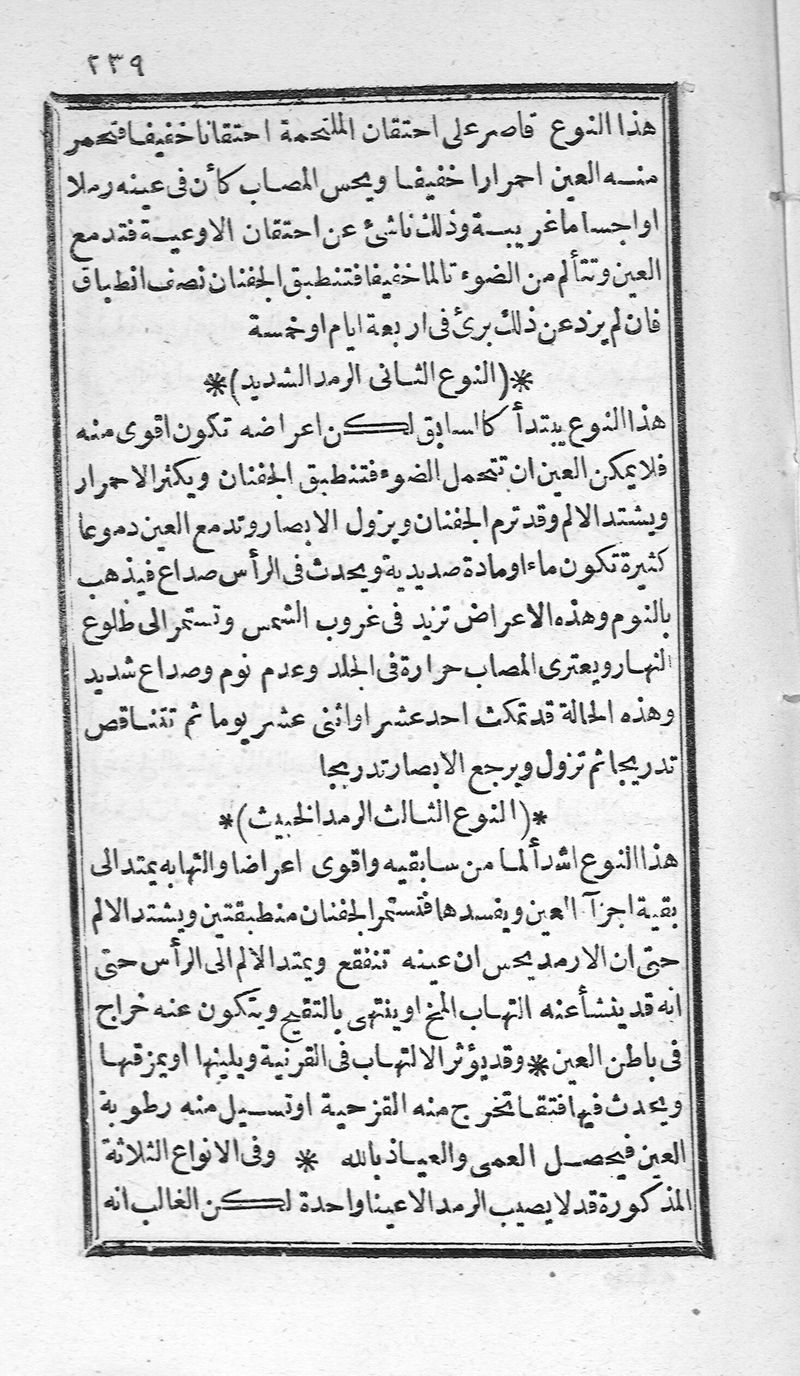 ٢٣٩
هذا النوع قاصر على احتقان الملتحمة احتقانا خفيفا فتحمر
منه العين احمرارا خفيفا ويحس المصاب كأن فى عينه رملا
او اجساما غريبة وذلك ناشئ عن احتقان الاوعية فتدمع
العين وتتألم من الضوء تالما خفيفا فتنطبق الجفنان نصف انطباق
فان لم يزد عن ذلك برئ فى اربعة ايام او خمسة
*(النوع الثانى الرمد الشديد)*
هذا النوع يبتدأ كالسابق لكن اعراضه تكون اقوى منه
فلا يمكن العين ان تتحمل الضوء فتنطبق الجفنان ويكثر الاحمرار
ويشتد الالم وقد ترم الجفنان ويزول الابصار وتدمع العين دموعا
كثيرة تكون ماء او مادة صديدية ويحدث فى الرأس صداع فيذهب
بالنوم وهذه الاعراض تزيد فى غروب الشمس وتستمر الى طلوع
النهار ويعترى المصاب حرارة فى الجلد وعدم نوم وصداع شديد
وهذه الحالة قد تمكث احد عشر او اثنى عشر يوما ثم تتناقص
تدريجا ثم تزول ويرجع الابصار تدريجا
*(النوع الثالث الرمد الخبيث)*
هذا النوع اشد ألما من سابقيه واقوى اعراضا والتهابه يمتد الى
بقية اجزآ العين ويفسدها فتستمر الجفنان منطبقتين ويشتد الالم
حتى ان الارمد يحس ان عينه تنفقع ويمتد الالم الى الرأس حتى
انه قد ينشأ عنه التهاب المخ او ينتهى بالتقيح ويتكون عنه خراج
فى باطن العين * وقد يؤثر الالتهاب فى القرنية ويلينها او يمزقها
ويحدث فيها فتقا تخرج منه القزحية او تسيل منه رطوبة
العين فيحصل العمى والعياذ بالله * وفى الانواع الثلاثة
المذكورة قد لا يصيب الرمد الا عينا واحدة لكن الغالب انه